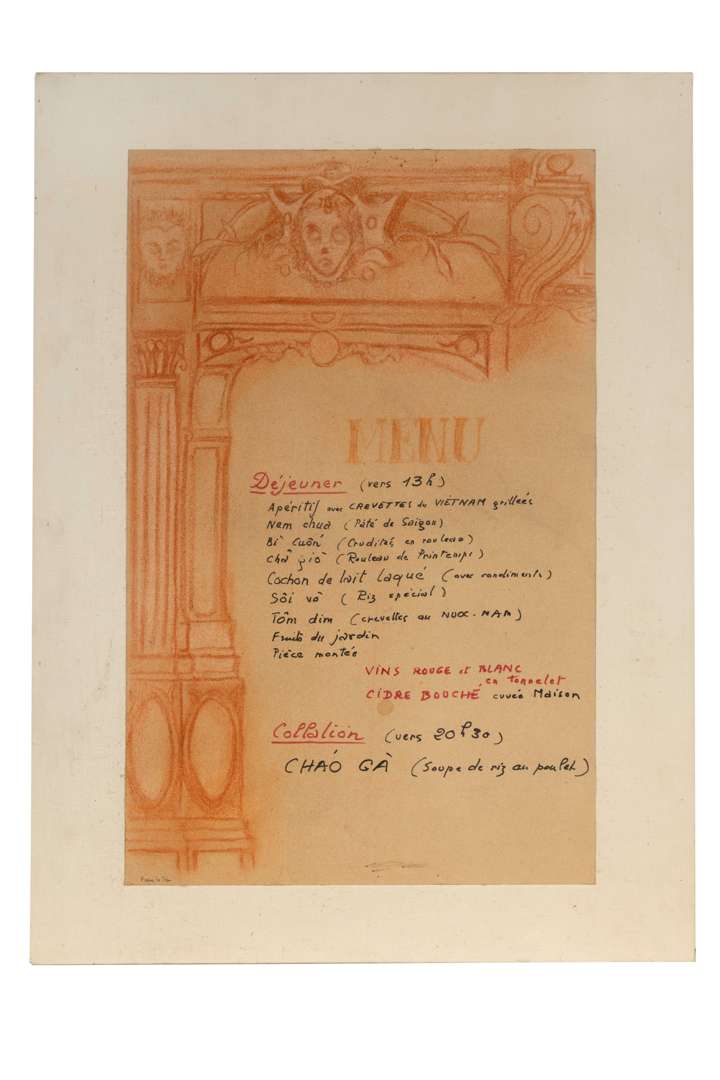 MENU
Déjeuner (vers 13h)
Apéritif avec CREVETTES du VIETNAM grillées
Nem chua (Pâté de Saigon)
Bì Cuốn (Crudités en rouleau)
Chả giò (Rouleau de Printemps)
Cochon de lait laqué (avec condiments)
Sôi vò (Riz spécial)
Tôm dim (crevettes au NUOC-MAM)
Fruits du jardin
Pièce montée
VINS ROUGE et BLANC
en tonnelet
CIDRE BOUCHÉ cuvée Maison
Collation (vers 20h30)
CHÁO GÀ (Soupe de riz au poulet)